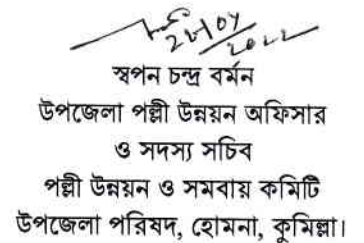 ২১/০৭/২০২২
স্বপন চন্দ্র বর্মন
উপজেলা পল্লী উন্নয়ন অফিসার
ও সদস্য সচিব
পল্লী উন্নয়ন ও সমবায় কমিটি
উপজেলা পরিষদ, হোমনা, কুমিল্লা।